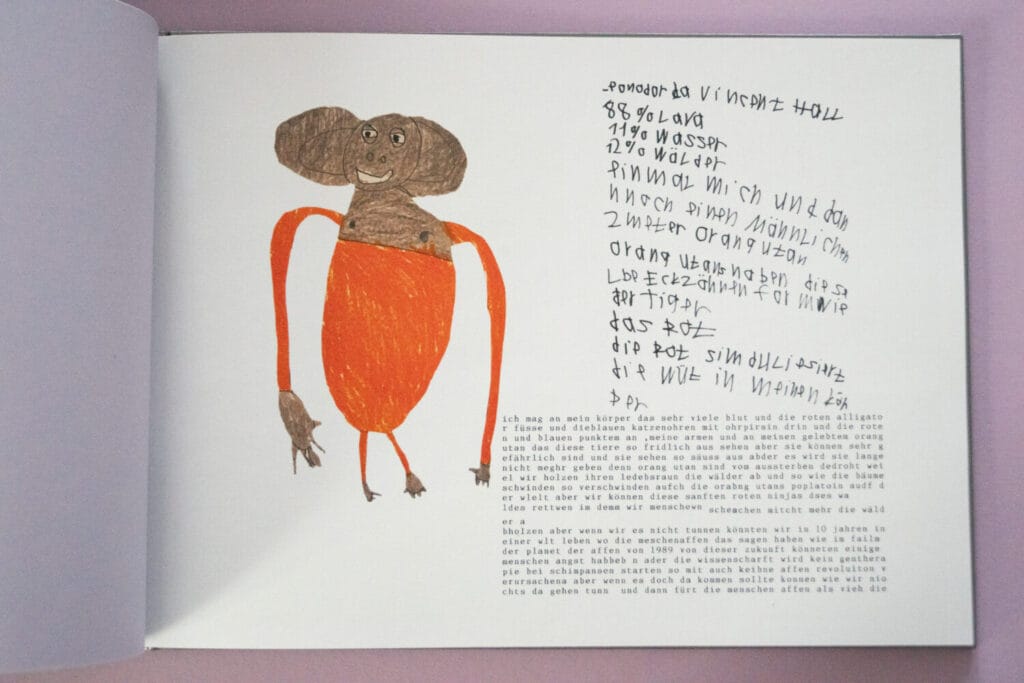 eonodor da vincent Hall
88% Lava
11% wasser
12% wälder
einmal mich und dan
nnoch einen Mähnlichen
2 meter orang utan
orang utans haben diese
Lbe Eckzähnen form wie
der tiger
das Rot
die Rot simduliesiert
die wüt in meinen kör
per
ich mag an mein körper das sehr viele blut und die roten alligato
r füsse und dieblauen katzenohren mit ohrpirsin drin und die rote
n und blauen punktem an ,meine armen und an meinen gelebtem orang
utan das diese tiere so fridlich aus sehen aber sie können sehr g
efährlich sind und sie sehen so säuss aus abder es wird sie lange
nicht meghr geben denn orang utan sind vom aussterben dedroht wei
el wir holzen ihren ledebsraun die wälder ab und so wie die bäume
schwinden so verschwinden aufch die orabng utans poplatoin audf d
er wlelt aber wir können diese sanften roten ninjas dses wa
ldes rettwen im demm wir menschewn schemchen mitcht mehr die wäld
er a
bholzen aber wenn wir es nicht tunnen könnten wir in 10 jahren in
einer wlt leben wo die meschenaffen das sagen haben wie im failm
der planet der affen von 1989 von dieser zukunft könneten einige
menschen angst habbeb n ader die wissenscharft wird kein genthera
pie bei schimpansen starten so mit auch keibne affen revoluiton v
erursachena aber wenn es doch da kommen sollte konnen wie wir nio
chts da gehen tunn und dann fürt die menschen affen als vieh die